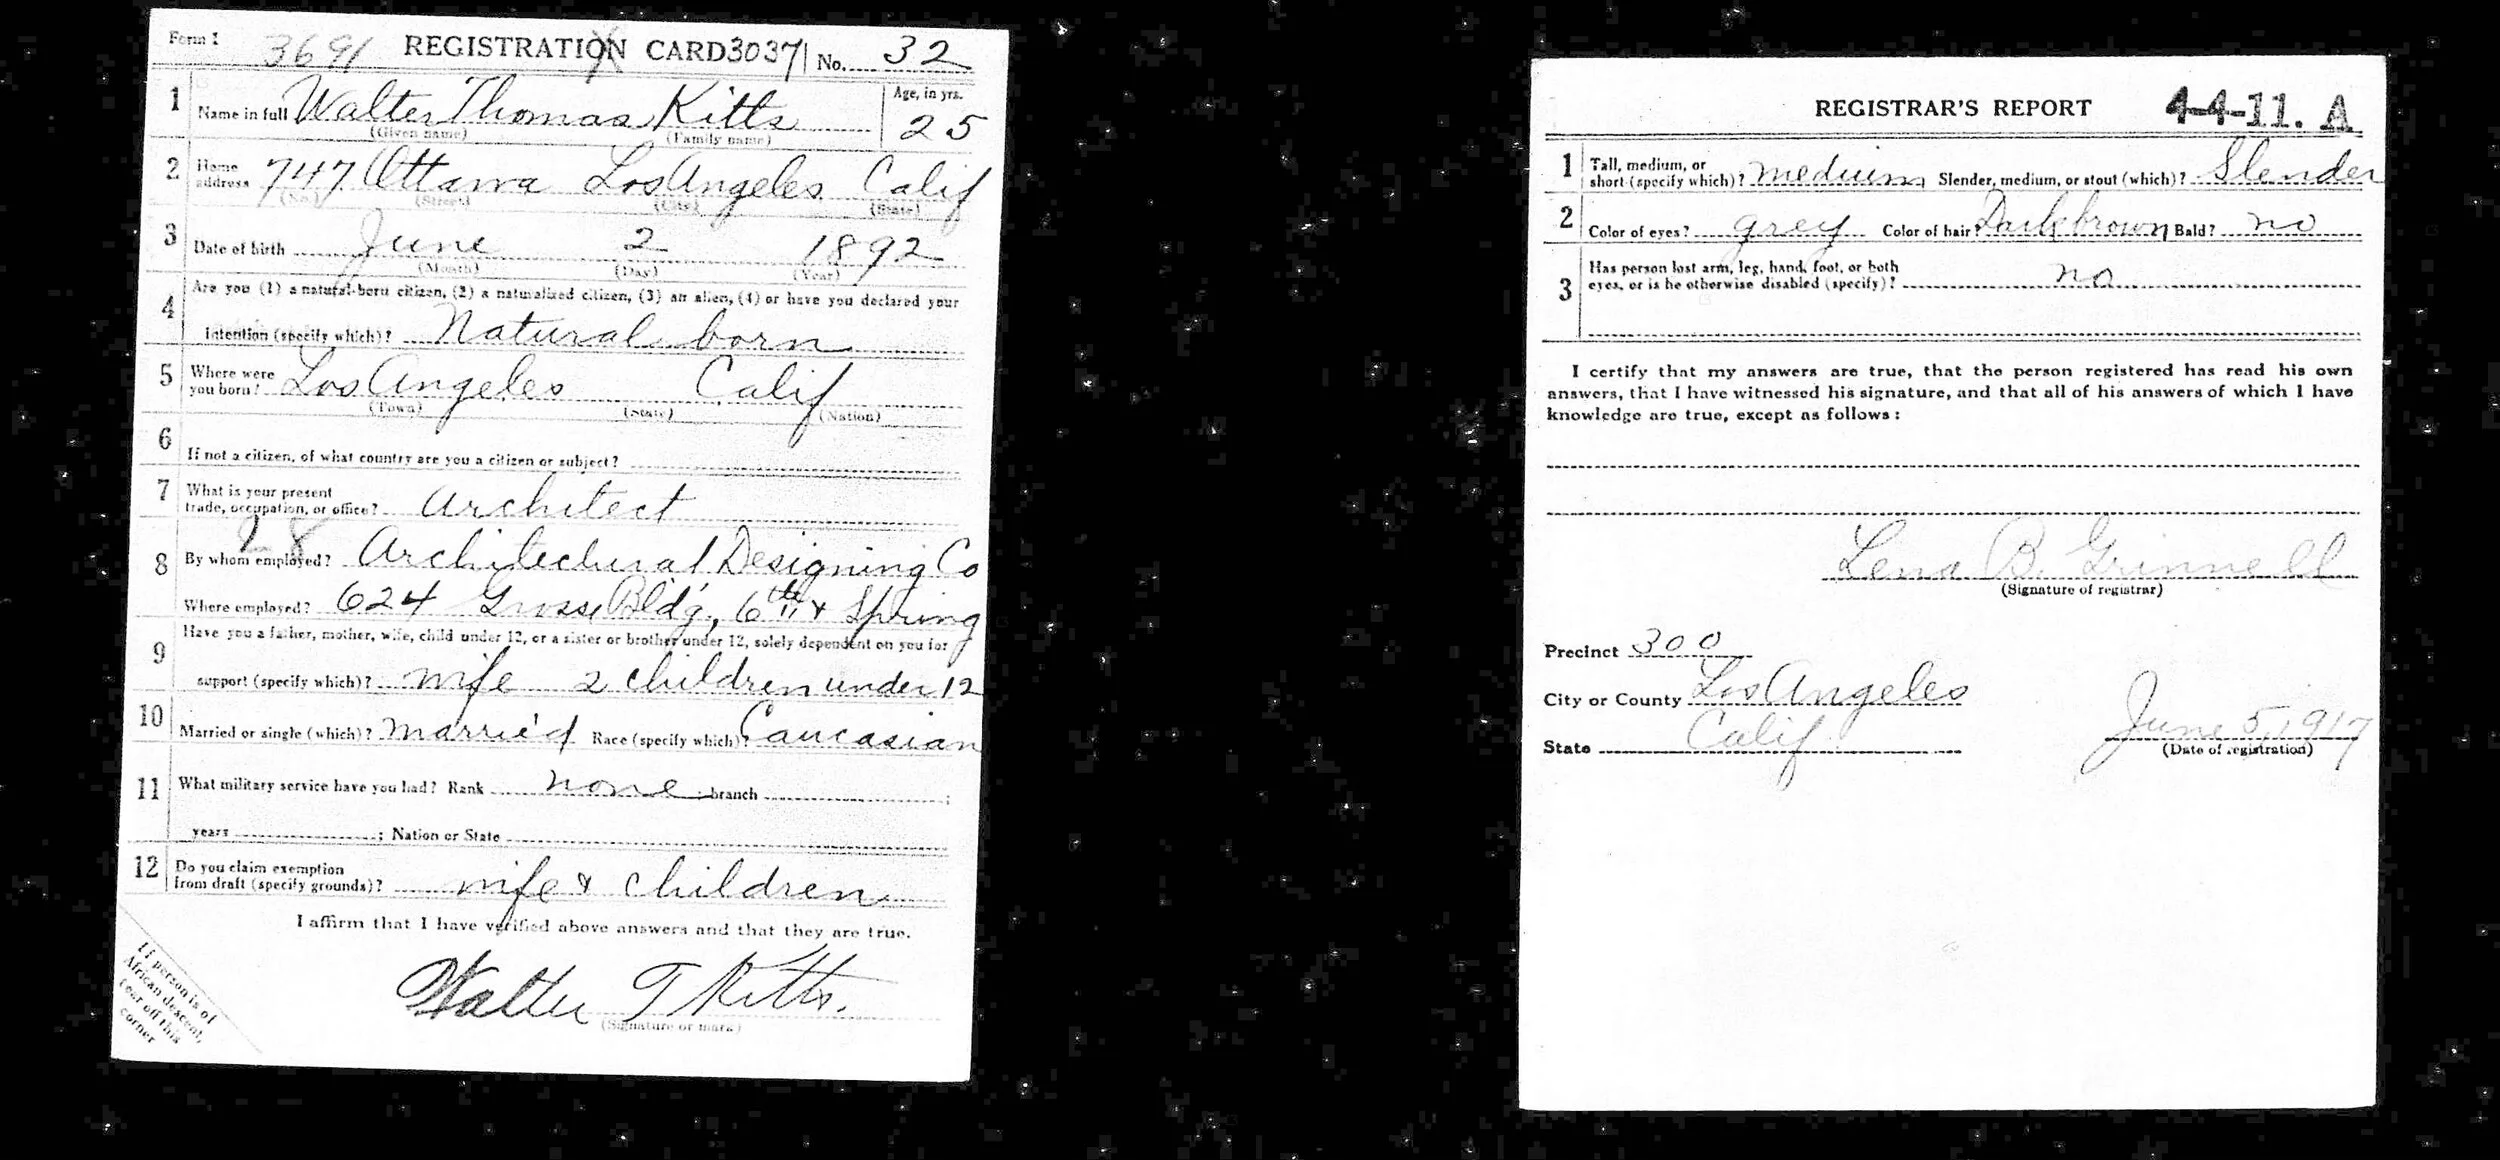 Form 1 3691 REGISTRATION CARD 3037 No. 32
1 Name in full Walter Thomas Kitts Age, in yrs. 25
(Given name) (Family name)
2 Home address 747 Ottawa Los Angeles Calif
(No.) (Street) (City) (State)
3 Date of birth June 2 1892
(Month) (Day) (Year)
4 Are you (1) a natural-born citizen, (2) a naturalized citizen, (3) an alien, (4) or have you declared your
intention (specify which)? Natural born
5 Where were you born? Los Angeles Calif
(Town) (State) (Nation)
6 If not a citizen, of what country are you a citizen or subject?
7 What is your present trade, occupation, or office? Architect
28
8 By whom employed? Architectural Designing Co
Where employed? 624 Grosse Bld'g, 6th & Spring
9 Have you a father, mother, wife, child under 12, or a sister or brother under 12, solely dependent on you for
support (specify which)? wife 2 children under 12
10 Married or single (which)? married Race (specify which)? Caucasian
11 What military service have you had? Rank none ; branch ;
years ; Nation or State
12 Do you claim exemption from draft (specify grounds)? wife & children
I affirm that I have verified above answers and that they are true.
Walter T Kitts.
(Signature or mark)
If person is of
African descent,
tear off this
corner
REGISTRAR'S REPORT 4-4-11. A
1 Tall, medium, or short (specify which)? medium Slender, medium, or stout (which)? Slender
2 Color of eyes? grey Color of hair? Dark brown Bald? no
3 Has person lost arm, leg, hand, foot, or both eyes, or is he otherwise disabled (specify)? no
I certify that my answers are true, that the person registered has read his own
answers, that I have witnessed his signature, and that all of his answers of which I have
knowledge are true, except as follows:
Lena B. Grinnell
(Signature of registrar)
Precinct 300
City or County Los Angeles
State Calif. June 5, 1917
(Date of registration)